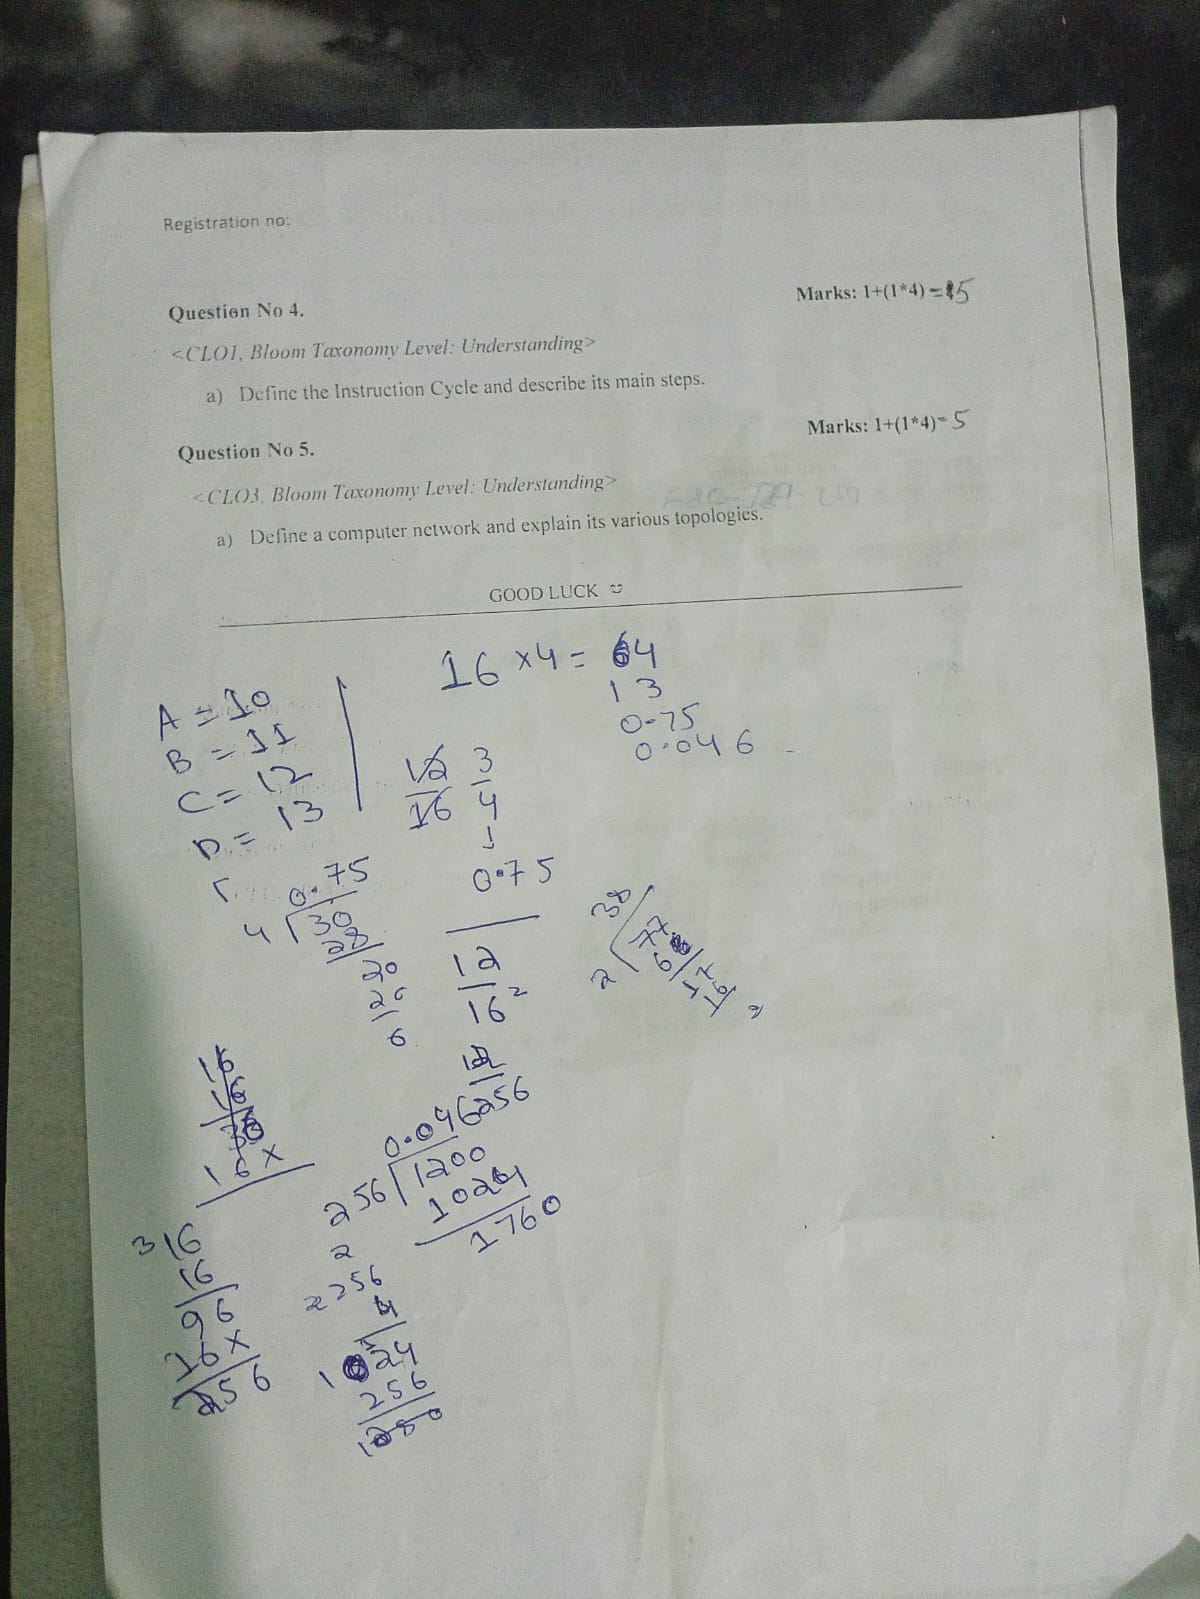 Registration no:
Question No 4.
Marks: 1+(1*4) = 5
<CLO1, Bloom Taxonomy Level: Understanding>
a) Define the Instruction Cycle and describe its main steps.
Question No 5.
Marks: 1+(1*4)= 5
<CLO3, Bloom Taxonomy Level: Understanding>
a) Define a computer network and explain its various topologies.
GOOD LUCK
16 ×4 = 64
13
0.75
0.046
A = 10
B = 11
C = 12
D = 13
12 3
16 4
0.75
0.75
4 30
28
20
20
0
12
16²
12
256
0.046
256 1200
1024
1760
38
2 77
6
17
16
16
16
96
16×
256
256
4
1024
256